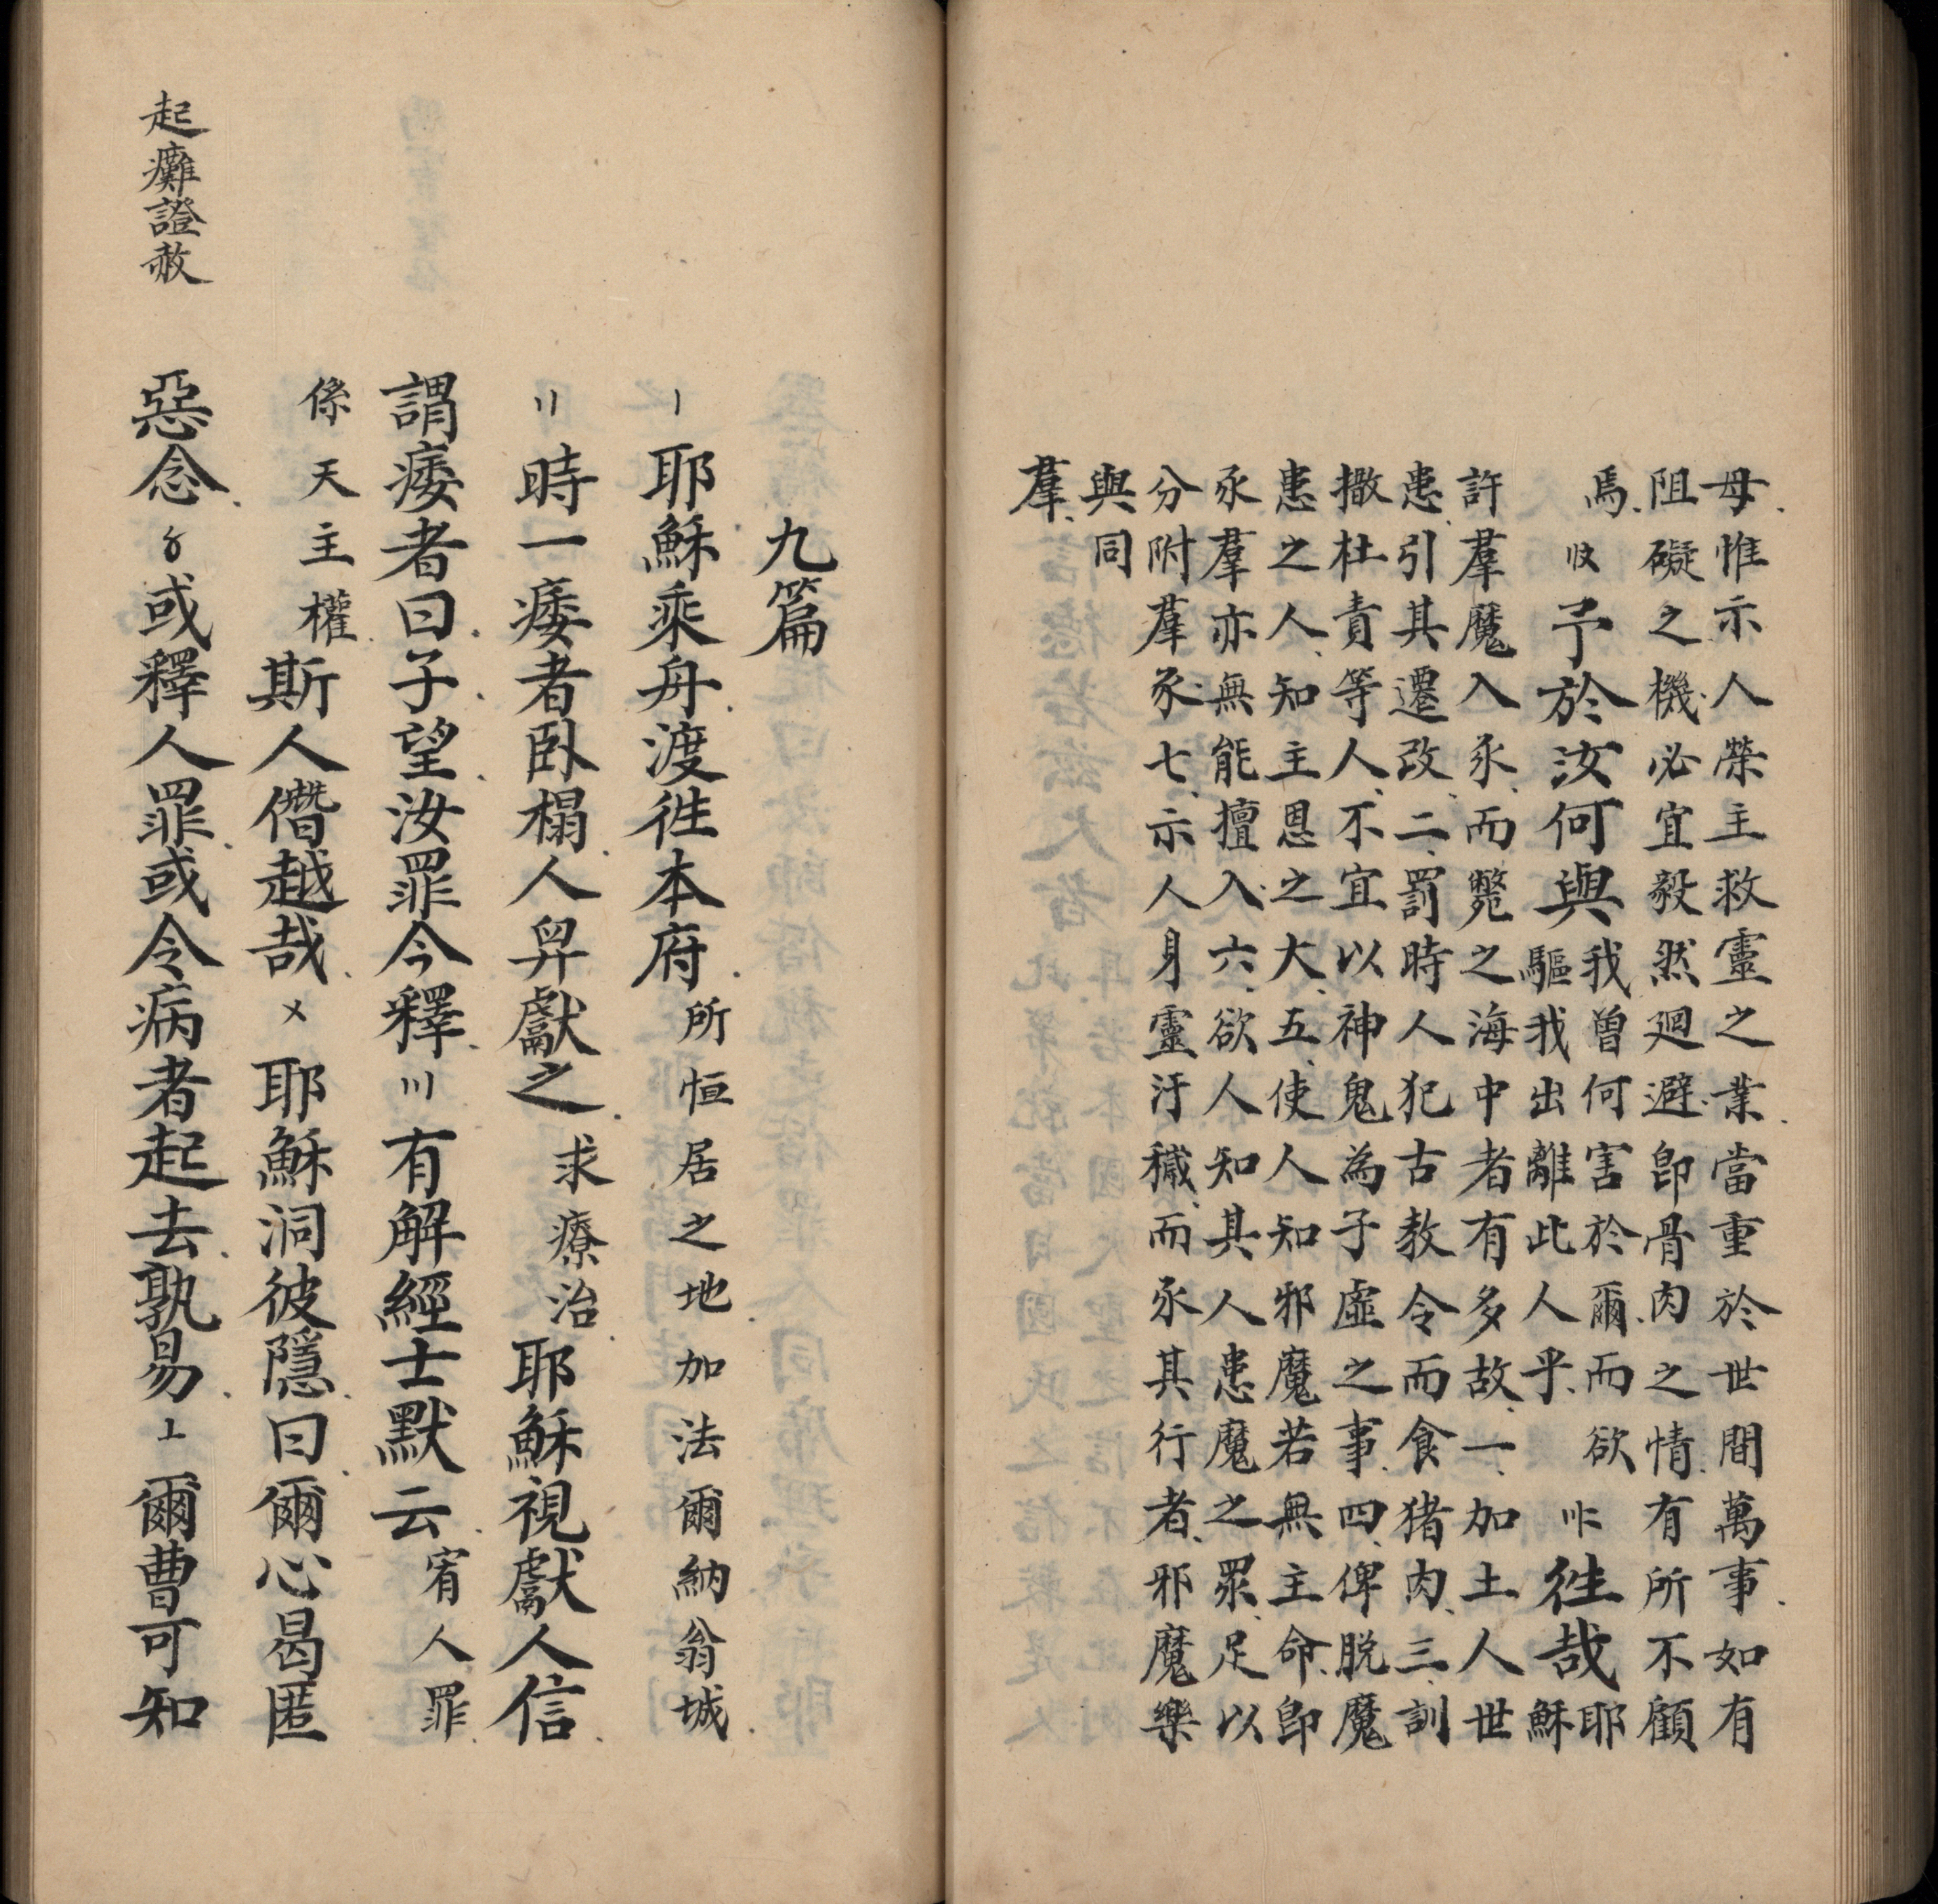 母惟示人榮主救靈之業當重於世間萬事如有
阻礙之機必宜毅然廻避即骨肉之情有所不顧
焉〢〩予於汝何與我曾何害於爾而欲驅我出離此人乎〣〢徃哉耶穌
許羣魔入豕而斃之海中者有多故一加土人世
患引其遷改二罰時人犯古教令而食猪肉三訓
撒杜責等人不宜以神鬼為子虛之事四俾脱魔
患之人知主恩之大五使人知邪魔若無主命即
豕羣亦無能擅入六欲人知其人患魔之眾足以
分附羣豕七示人身靈汙穢而豕其行者邪魔樂
與同
羣
九篇
〡耶穌乘舟渡徃本府所恒居之地加法爾納翁城
〢時一痿者臥榻人舁獻之求療治耶穌視獻人信
謂痿者曰子望汝罪今釋〣有解經士默云宥人罪
係天主權斯人僭越哉〤耶穌洞彼隱曰爾心曷匿
惡念〥或釋人罪或令病者起去孰易〦爾曹可知
起癱證赦